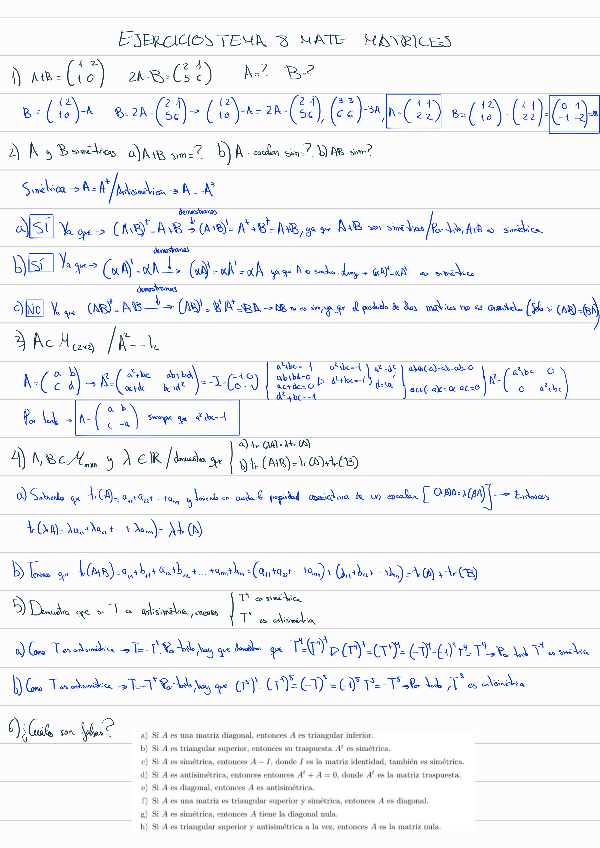 EJERCICIOS TEMA 8 MATE MATRICES
1) A+B = (1 2 / 1 0) 2A-B = (2 1 / 5 6) A=? B=?
B = (1 2 / 1 0) - A B = 2A - (2 1 / 5 6) → (1 2 / 1 0) - A = 2A - (2 1 / 5 6), (3 3 / 6 6) = 3A, A = (1 1 / 2 2) B = (1 2 / 1 0) - (1 1 / 2 2) = (0 1 / -1 -2)
2) A y B simétricas a) A+B sim=? b) A · escalar sim=? b) AB sim=?
Simétrica → A = A^t / Antisimétrica → A = -A^t
demostramos
a) SÍ Ya que → (A+B)^t = A+B → (A+B)^t = A^t + B^t = A+B, ya que A+B son simétricas / Por tanto, A+B es simétrica.
demostramos
b) SÍ Ya que → (αA)^t = αA → (αA)^t = αA^t = αA ya que A es simétrica → (αA)^t = αA^t es simétrica
demostramos
c) NO Ya que (AB)^t = AB → (AB)^t = B^t A^t = BA → AB no es sim, ya que el producto de dos matrices no es conmutativa (Sólo si (AB) = (BA)
3) A ∈ M(2x2) / A² = -I₂
A = (a b / c d) → A² = (a²+bc ab+bd / ac+dc bc+d²) = -I = (-1 0 / 0 -1)
a²+bc=-1
ab+bd=0
ac+dc=0
d²+bc=-1
Por tanto → A = (a b / c -a) siempre que a²+bc=-1
4) A, B ∈ M nxn y λ ∈ ℝ / demuestra que a) tr (λA) = λtr (A)
b) tr (A+B) = tr (A) + tr (B)
a) Sabiendo que tr (A) = a₁₁ + a₂₂ + ... + ann y teniendo en cuenta la propiedad asociativa de un escalar → Entonces
tr (λA) = λa₁₁ + λa₂₂ + ... + λann = λ tr (A)
b) Tenemos que tr (A+B) = a₁₁+b₁₁+a₂₂+b₂₂+...+ann+bnn = (a₁₁+a₂₂+...+ann) + (b₁₁+b₂₂+...+bnn) = tr (A) + tr (B)
5) Demuestra que si T es antisimétrica, entonces T⁴ es simétrica
T⁵ es antisimétrica
a) Como T es antisimétrica → T = -T^t Por tanto, hay que demostrar que T⁴ = (T⁴)^t ▷ (T⁴)^t = (T^t)⁴ = (-T)⁴ = (-1)⁴ T⁴ = T⁴ → Por tanto T⁴ es simétrica
b) Como T es antisimétrica → T = -T^t Por tanto, hay que (T⁵)^t = (T^t)⁵ = (-T)⁵ = (-1)⁵ T⁵ = -T⁵ → Por tanto, T⁵ es antisimétrica
6) ¿Cuáles son falsas?
a) Si A es una matriz diagonal, entonces A es triangular inferior.
b) Si A es triangular superior, entonces su traspuesta A^t es simétrica.
c) Si A es simétrica, entonces A − I, donde I es la matriz identidad, también es simétrica.
d) Si A es antisimétrica, entonces entonces A^t + A = 0, donde A^t es la matriz traspuesta.
e) Si A es diagonal, entonces A es antisimétrica.
f) Si A es una matriz es triangular superior y simétrica, entonces A es diagonal.
g) Si A es simétrica, entonces A tiene la diagonal nula.
h) Si A es triangular superior y antisimétrica a la vez, entonces A es la matriz nula.